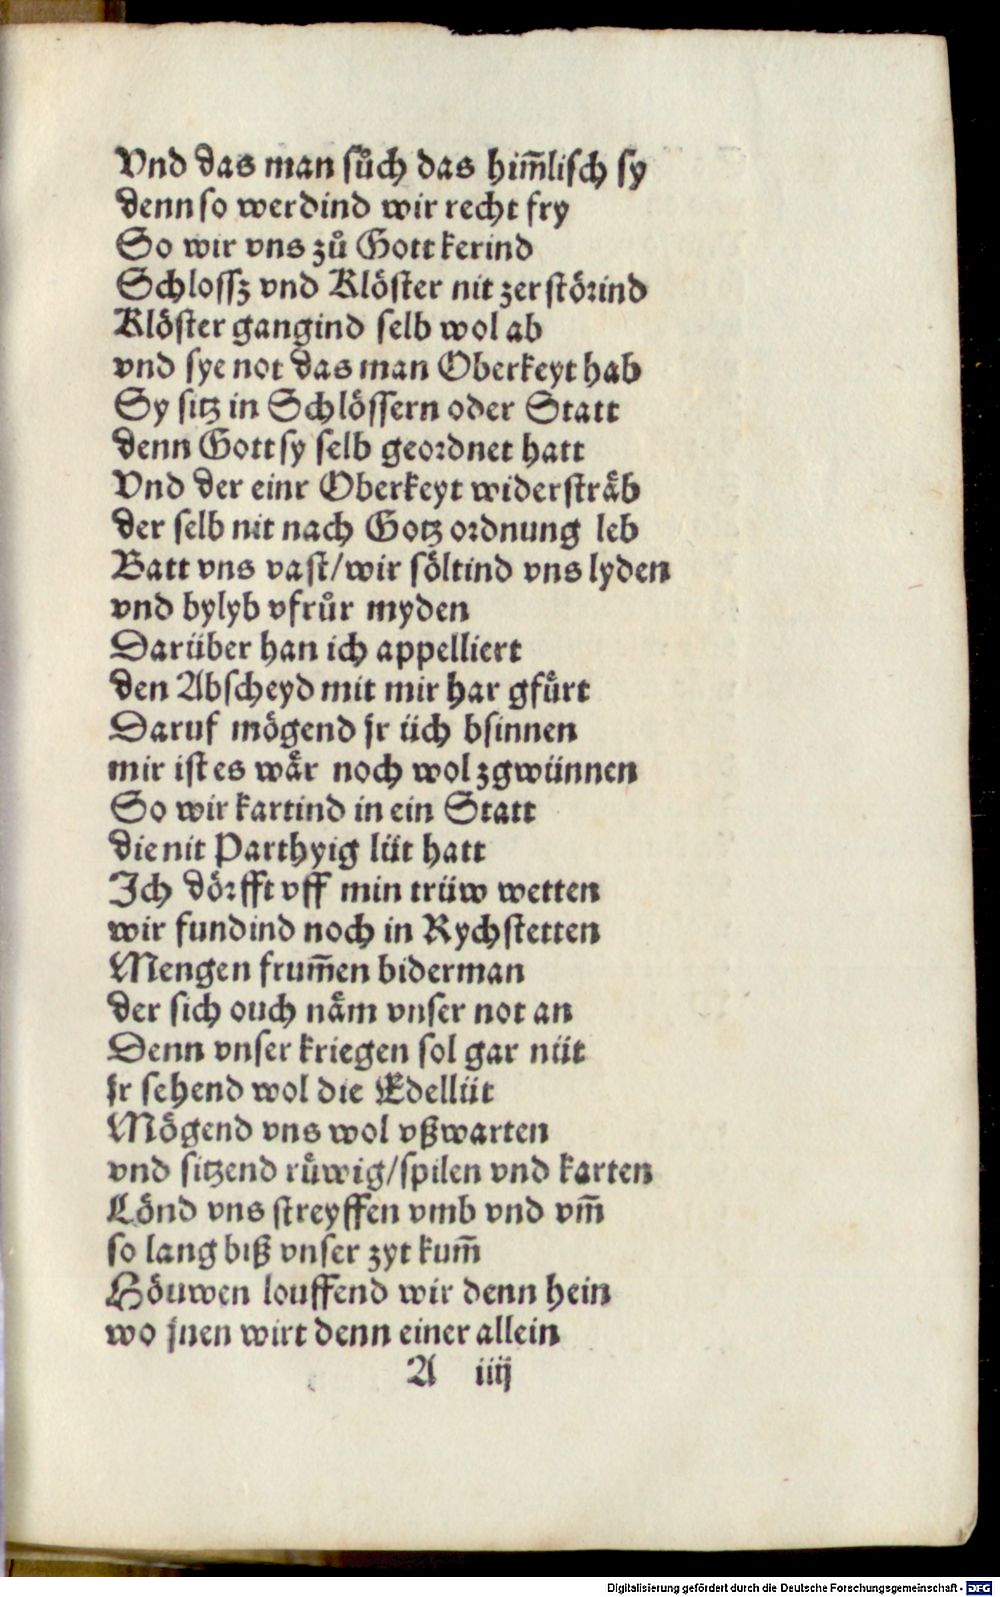 Vnd das man sůch das him̄lisch sy
denn so werdind wir recht fry
So wir vns zů Gott kerind
Schlossz vnd Klöster nit zerstörind
Klöster gangind selb wol ab
vnd sye not das man Oberkeyt hab
Sy sitz in Schlössern oder Statt
denn Gott sy selb geordnet hatt
Vnd der einr Oberkeyt widersträb
der selb nit nach Gotz ordnung leb
Batt vns vast/wir söltind vns lyden
vnd bylyb vfrůr myden
Darüber han ich appelliert
den Abscheyd mit mir har gfůrt
Daruf mögend jr üch bsinnen
mir ist es wär noch wol zgwünnen
So wir kartind in ein Statt
die nit Parthyig lüt hatt
Ich dörfft vff min trüw wetten
wir fundind noch in Rychstetten
Mengen frum̄en biderman
der sich ouch näm vnser not an
Denn vnser kriegen sol gar nüt
jr sehend wol die Edellüt
Mögend vns wol vßwarten
vnd sitzend růwig/spilen vnd karten
Lönd vns streyffen vmb vnd vm̄
so lang biß vnser zyt kum̄
Höuwen louffend wir denn hein
wo jnen wirt denn einer allein
A iiij
Digitalisierung gefördert durch die Deutsche Forschungsgemeinschaft - DFG